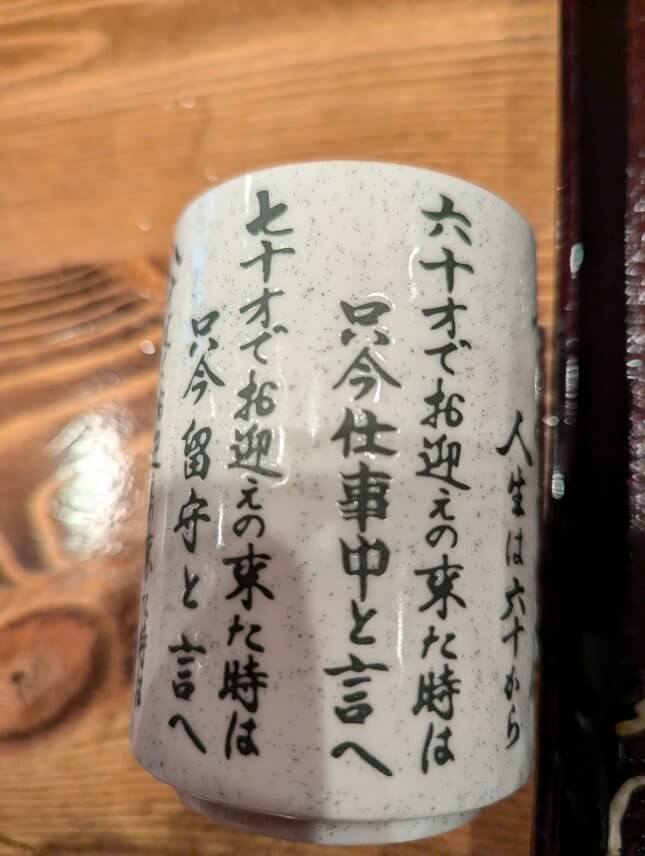 人生は六十から
六十才でお迎えの来た時は
只今仕事中と言へ
七十才でお迎えの来た時は
只今留守と言へ